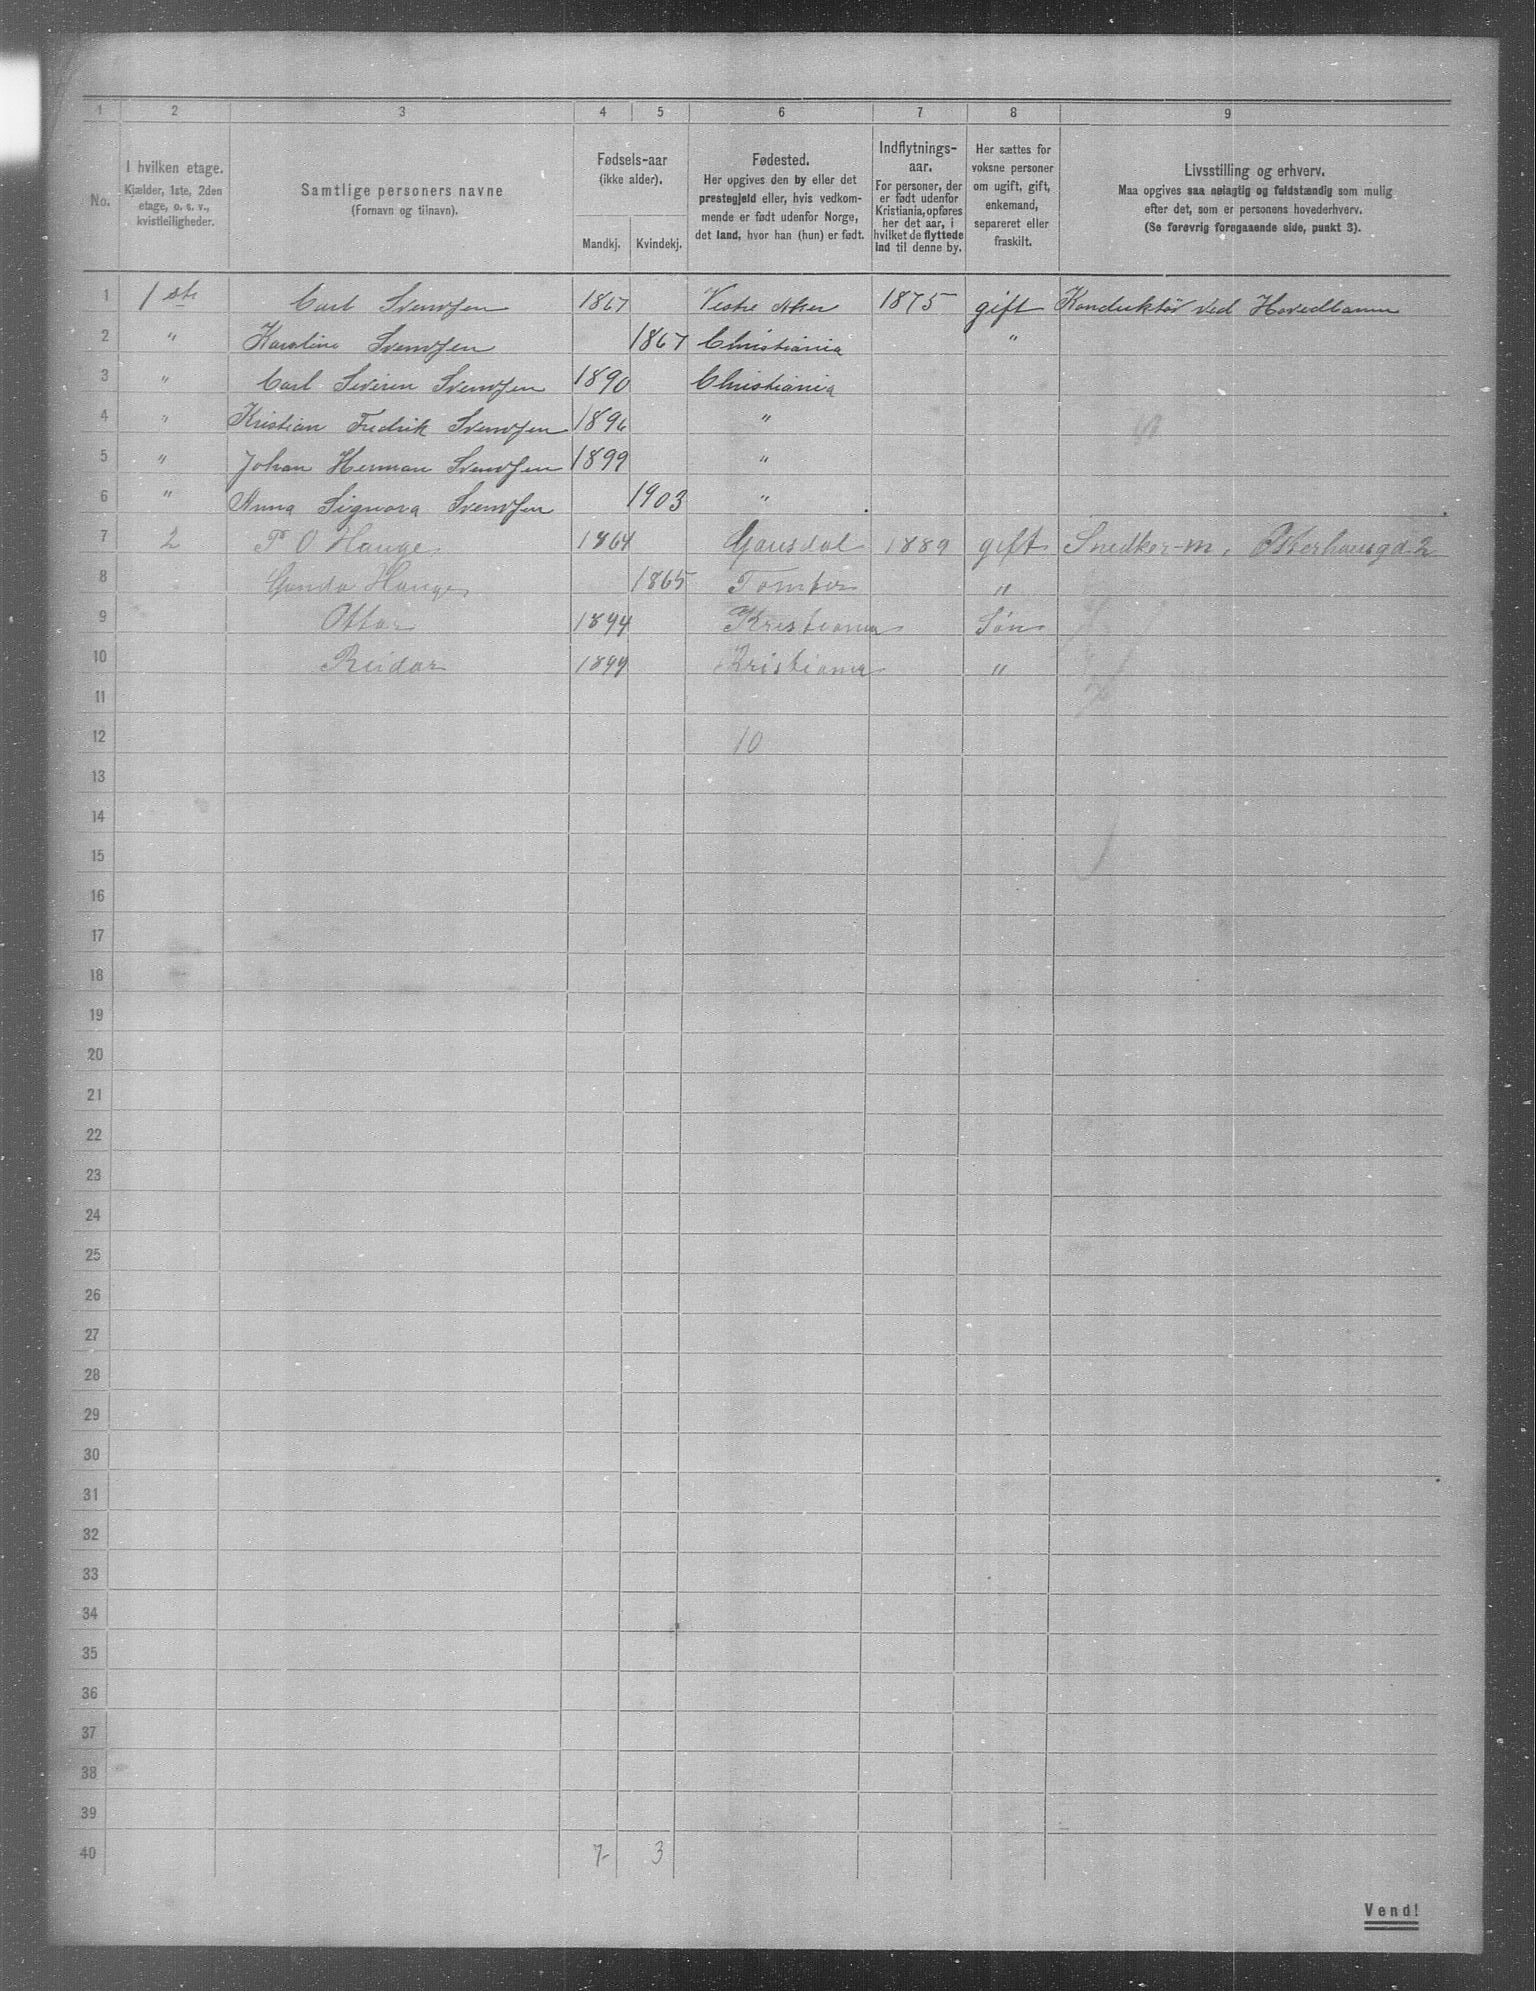 1 2 3 4 5 6 7 8 9
No.
I hvilken etage.
Kjælder, 1ste, 2den
etage, o. s. v.,
kvistleiligheder.
Samtlige personers navne
(Fornavn og tilnavn).
Fødsels-aar
(ikke alder).
Mandkj. Kvindekj.
Fødested.
Her opgives den by eller det
prestegjeld eller, hvis vedkom-
mende er født udenfor Norge,
det land, hvor han (hun) er født.
Indflytnings-
aar.
For personer, der
er født udenfor
Kristiania, opføres
her det aar, i
hvilket de flyttede
ind til denne by.
Her sættes for
voksne personer
om ugift, gift,
enkemand,
separeret eller
fraskilt.
Livsstilling og erhverv.
Maa opgives saa nøiagtig og fuldstændig som mulig
efter det, som er personens hovederhverv.
(Se forøvrig foregaaende side, punkt 3).
1 1ste Carl Svendsen 1867 Vestre Aker 1875 gift Konduktør ved Hovedbanen
2 " Karoline Svendsen 1867 Christiania "
3 " Carl Severin Svendsen 1890 Christiania
4 " Kristian Fredrik Svendsen 1896 "
5 " Johan Herman Svendsen 1899 "
6 " Anna Signora Svendsen 1903 "
7 2 P O Hauge 1864 Gausdal 1889 gift Snedker-m. Osterhausgd 2
8 Gunda Hauge 1865 Tomter "
9 Ottar 1894 Kristiania Søn
10 Reidar 1899 Kristiania "
11
12 10
13
14
15
16
17
18
19
20
21
22
23
24
25
26
27
28
29
30
31
32
33
34
35
36
37
38
39
40 7 3
Vend!